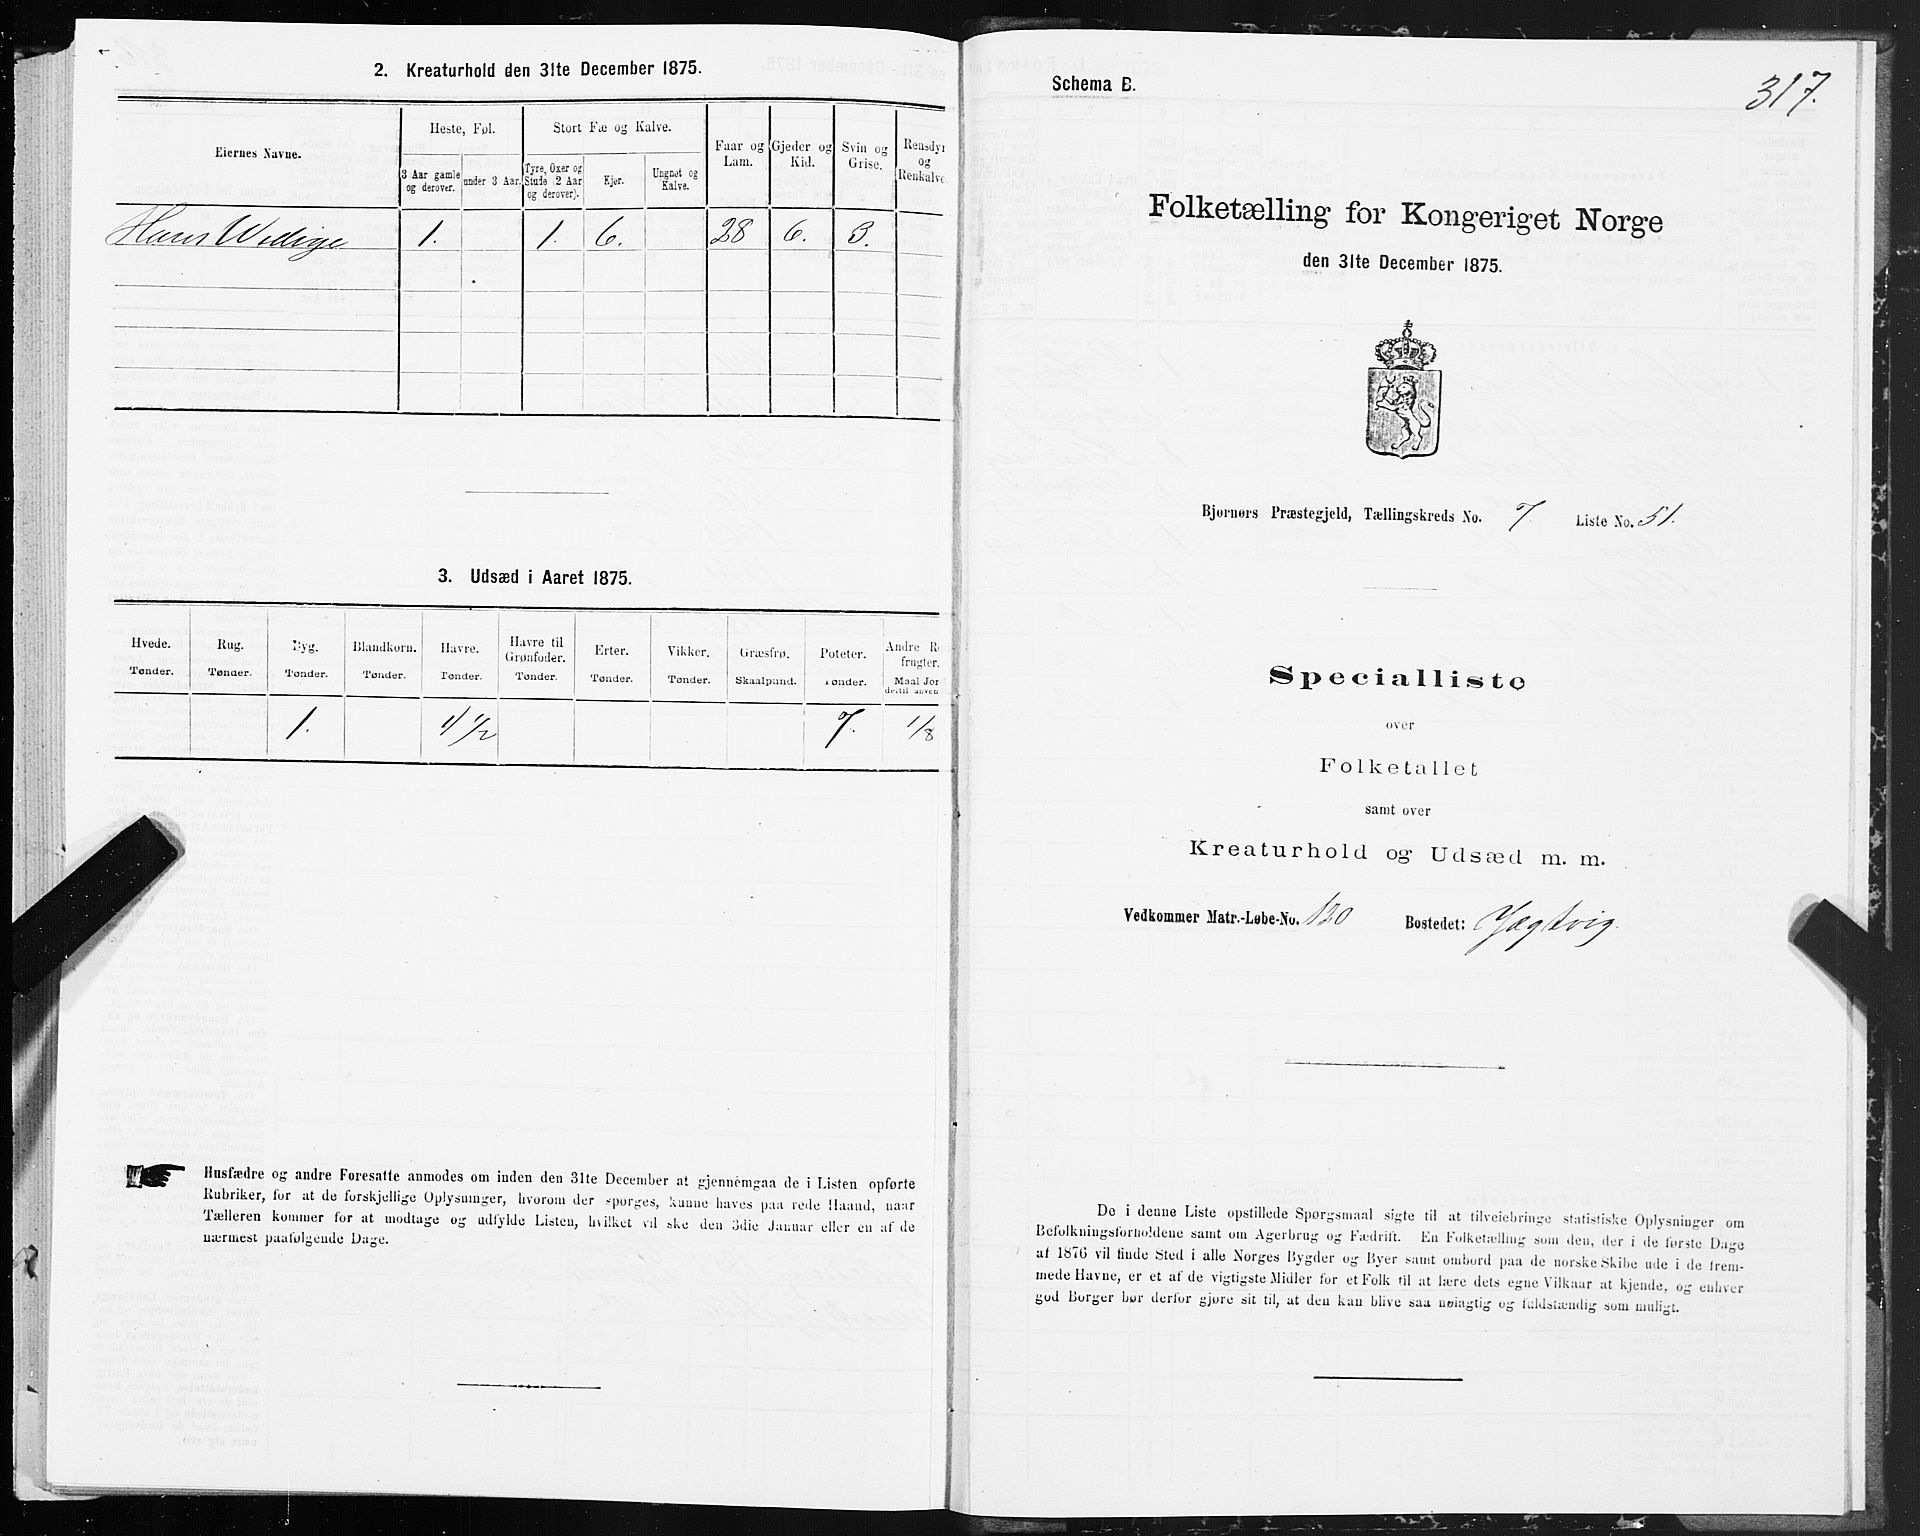 2. Kreaturhold den 31te December 1875.
Eiernes Navne.
Heste, Føl.
Stort Fæ og Kalve.
Faar og Lam.
Gjeder og Kid.
Svin og Grise.
Rensdyr og Renkalve
3 Aar gamle og derover.
under 3 Aar.
Tyre, Oxer og Stude (2 Aar og derover).
Kjør.
Ungnøt og Kalve.
Hans 1. 1. 6. 28 6. 3.
3. Udsæd i Aaret 1875.
Hvede. Rug. Byg. Blandkorn. Havre. Havre til Grønfoder. Erter. Vikker. Græsfrø. Poteter. Andre Ro frugter.
Tønder. Tønder. Tønder. Tønder. Tønder. Tønder. Tønder. Tønder. Skaalpund. Tønder. Maal Jor dertil anven
1. 4 1/2 7. 1/8
Husfædre og andre Foresatte anmodes om inden den 31te December at gjennemgaa de i Listen opførte
Rubriker, for at de forskjellige Oplysninger, hvorom der spørges, kunne haves paa rede Haand, naar
Tælleren kommer for at modtage og udfylde Listen, hvilket vil ske den 3die Januar eller en af de
nærmest paafølgende Dage.
317.
Schema B.
Folketælling for Kongeriget Norge
den 31te December 1875.
Bjørnørs Præstegjeld, Tællingskreds No. 7. Liste No. 51.
Specialliste
over
Folketallet
samt over
Kreaturhold og Udsæd m. m.
Vedkommer Matr.-Løbe-No. 120 Bostedet: Jægtvig.
De i denne Liste opstillede Spørgsmaal sigte til at tilveiebringe statistiske Oplysninger om
Befolkningsforholdene samt om Agerbrug og Fædrift. En Folketælling som den, der i de første Dage
af 1876 vil finde Sted i alle Norges Bygder og Byer samt ombord paa de norske Skibe ude i de frem-
mede Havne, er et af de vigtigste Midler for et Folk til at lære dets egne Vilkaar at kjende, og enhver
god Borger bør derfor gjøre sit til, at den kan blive saa nøiagtig og fuldstændig som muligt.